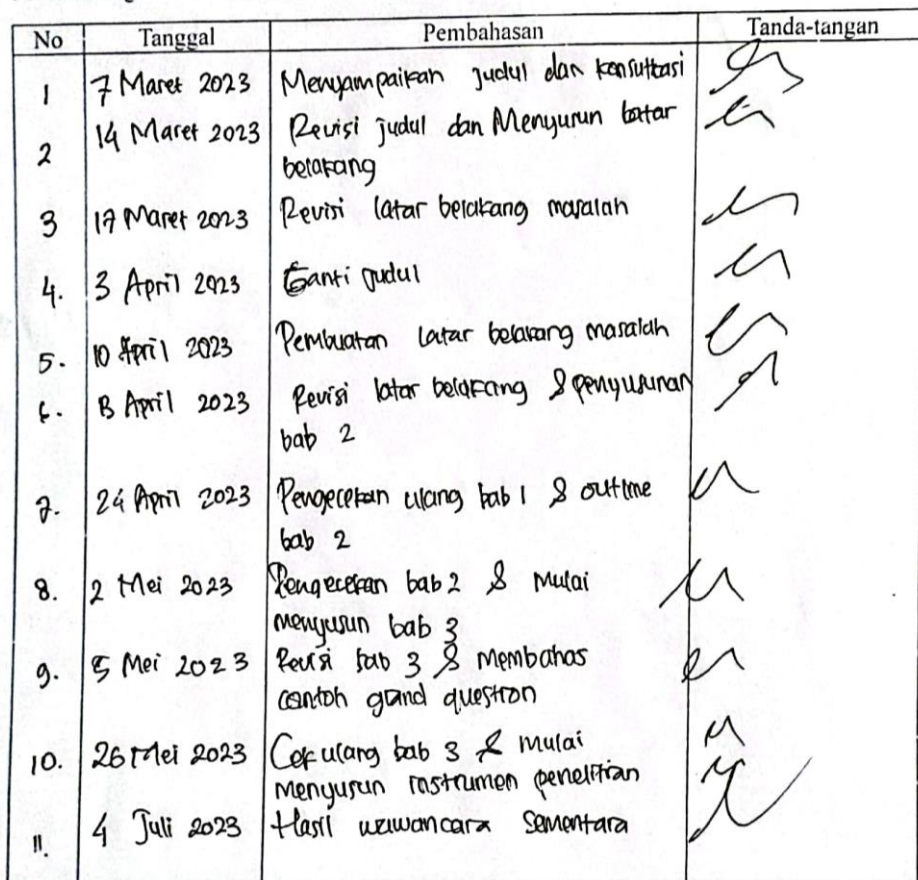 No Tanggal Pembahasan Tanda-tangan
1 7 Maret 2023 Menyampaikan judul dan konsultasi
2 14 Maret 2023 Revisi judul dan Menyusun latar
belakang
3 17 Maret 2023 Revisi latar belakang masalah
4. 3 April 2023 Ganti judul
5. 10 April 2023 Pembuatan latar belakang masalah
6. April 2023 Revisi latar belakang & penyusunan
bab 2
7. 24 April 2023 Pengecekan ulang bab 1 & outline
bab 2
8. 2 Mei 2023 Pengecekan bab 2 & Mulai
menyusun bab 3
9. 5 Mei 2023 Revisi bab 3 & Membahas
contoh grand question
10. 26 Mei 2023 Cek ulang bab 3 & mulai
menyusun instrumen penelitian
11. 4 Juli 2023 Hasil wawancara Sementara